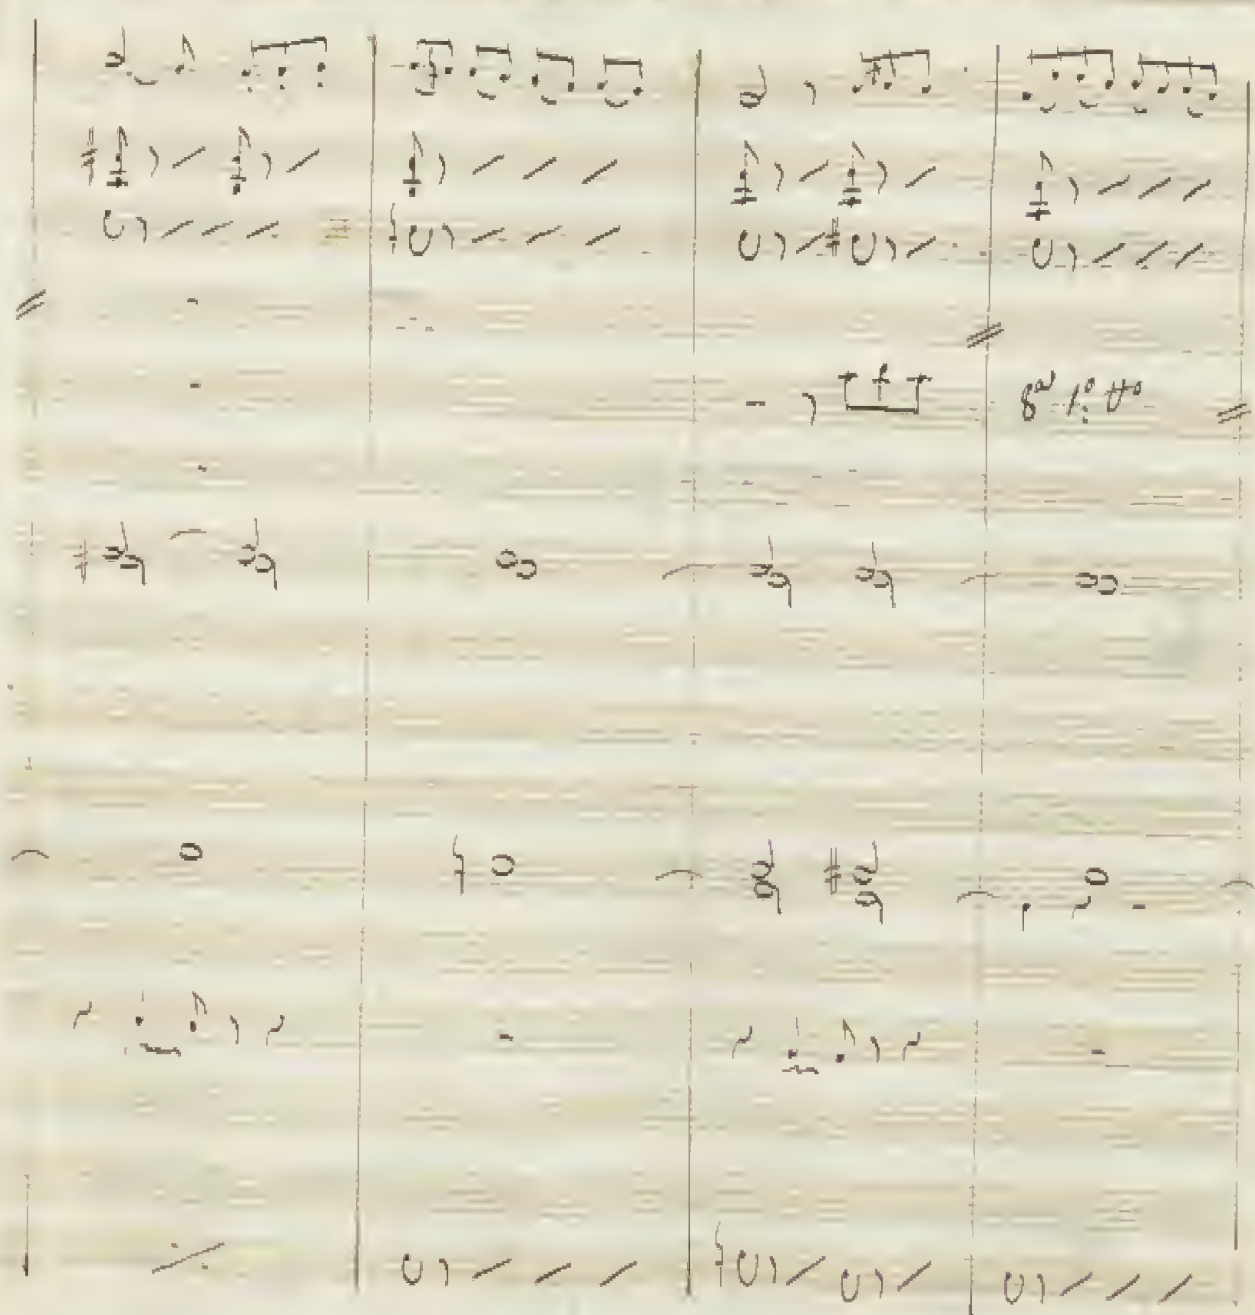 8ª 1º Vº